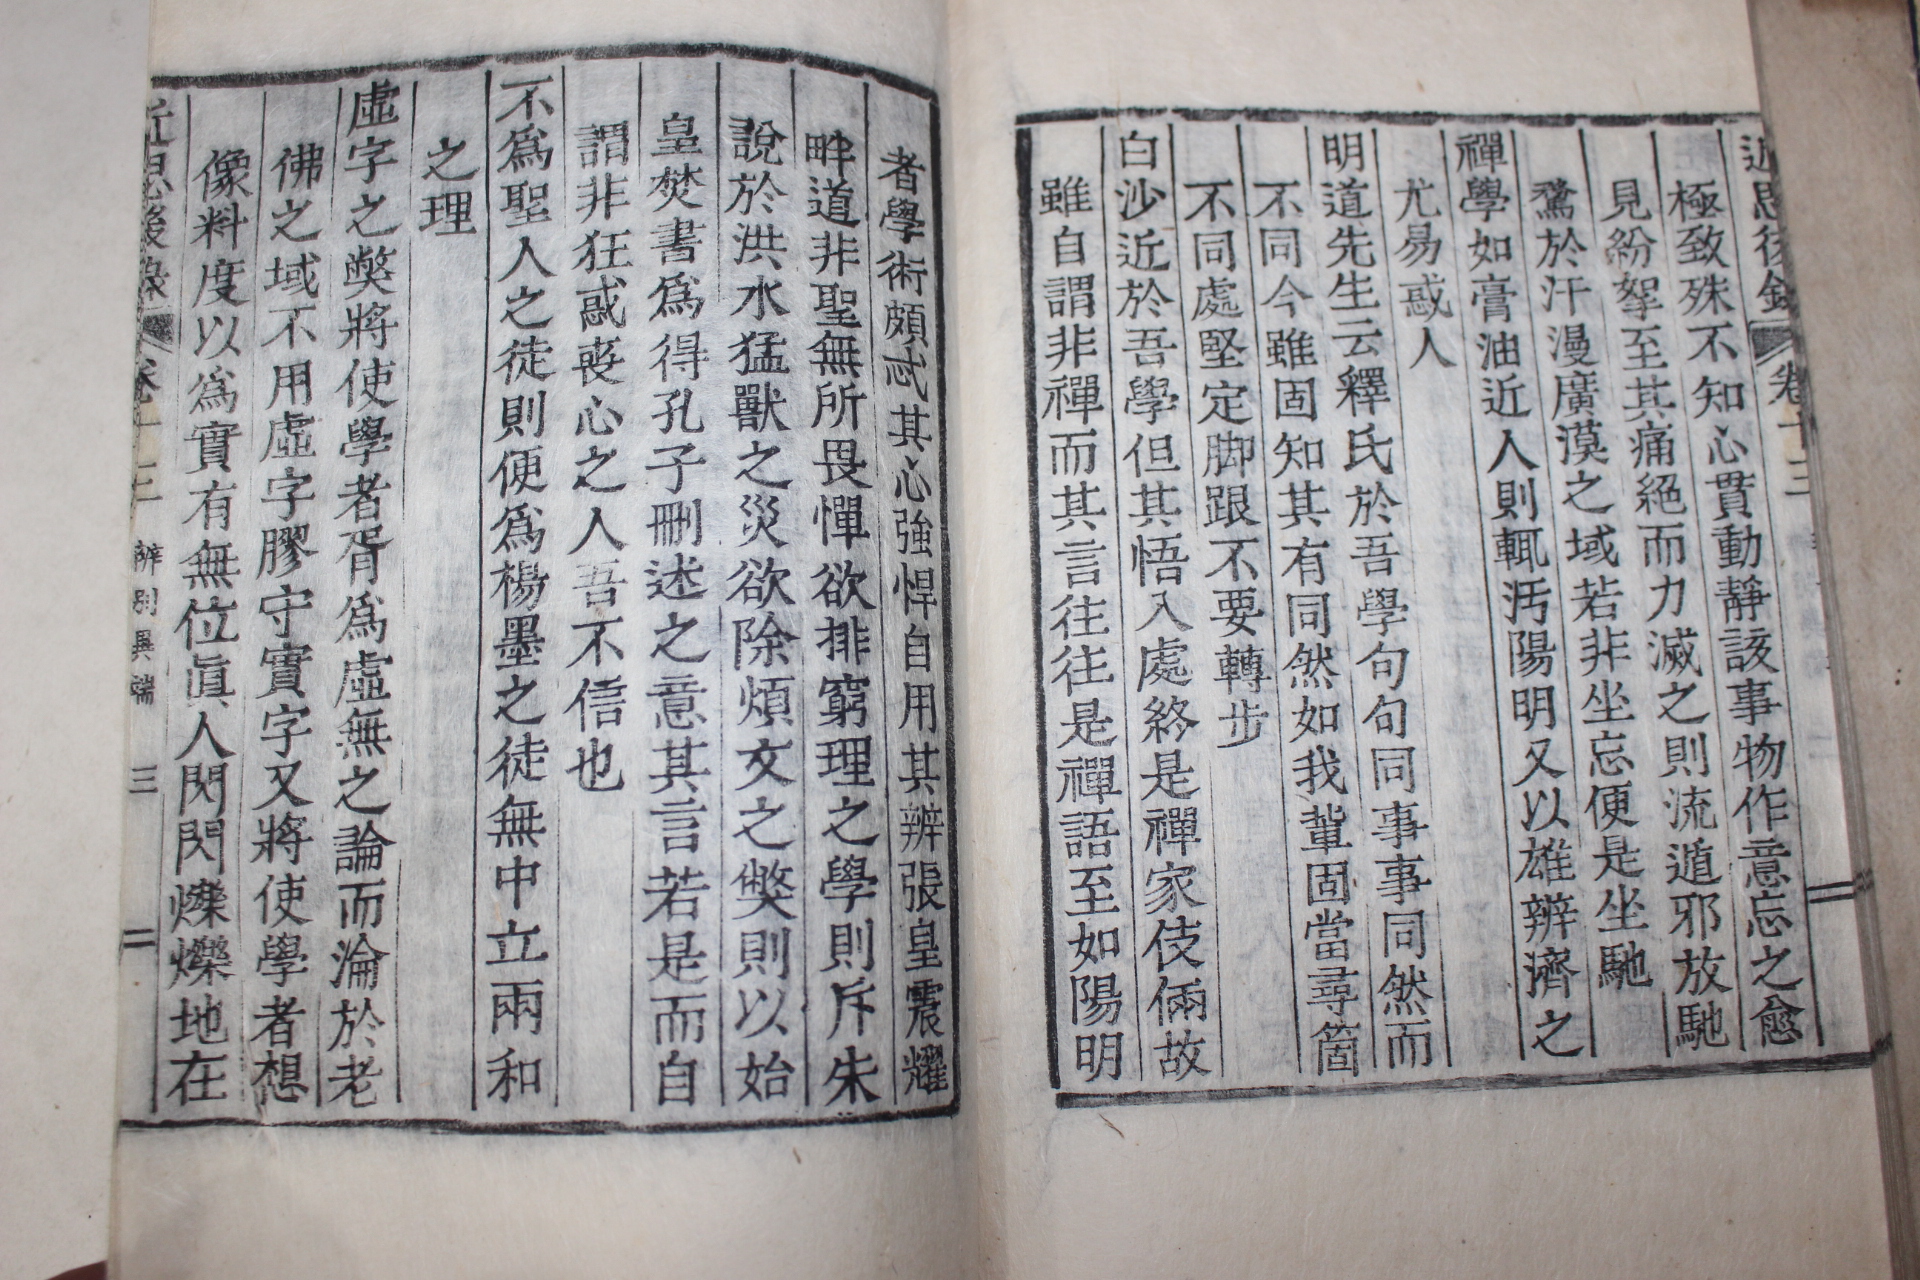 近思後錄 卷十三
極致殊不知心貫動靜該事物作意忘之愈
見紛拏至其痛絕而力滅之則流遁邪放馳
騖於汗漫廣漠之域若非坐忘便是坐馳
禪學如膏油近人則輒汚陽明又以雄辨濟之
尤易惑人
明道先生云釋氏於吾學句句同事事同然而
不同今雖固知其有同然如我輩固當尋箇
不同處堅定脚跟不要轉步
白沙近於吾學但其悟入處終是禪家伎倆故
雖自謂非禪而其言往往是禪語至如陽明
者學術頗忒其心強悍自用其辨張皇震耀
畔道非聖無所畏憚欲排窮理之學則斥朱
說於洪水猛獸之災欲除煩文之弊則以始
皇焚書爲得孔子刪述之意其言若是而自
謂非狂惑喪心之人吾不信也
不爲聖人之徒則便爲楊墨之徒無中立兩和
之理
虛字之弊將使學者胥爲虛無之論而淪於老
佛之域不用虛字膠守實字又將使學者想
像料度以爲實有無位眞人閃閃爍爍地在
近思後錄 卷十三 辨別異端 三